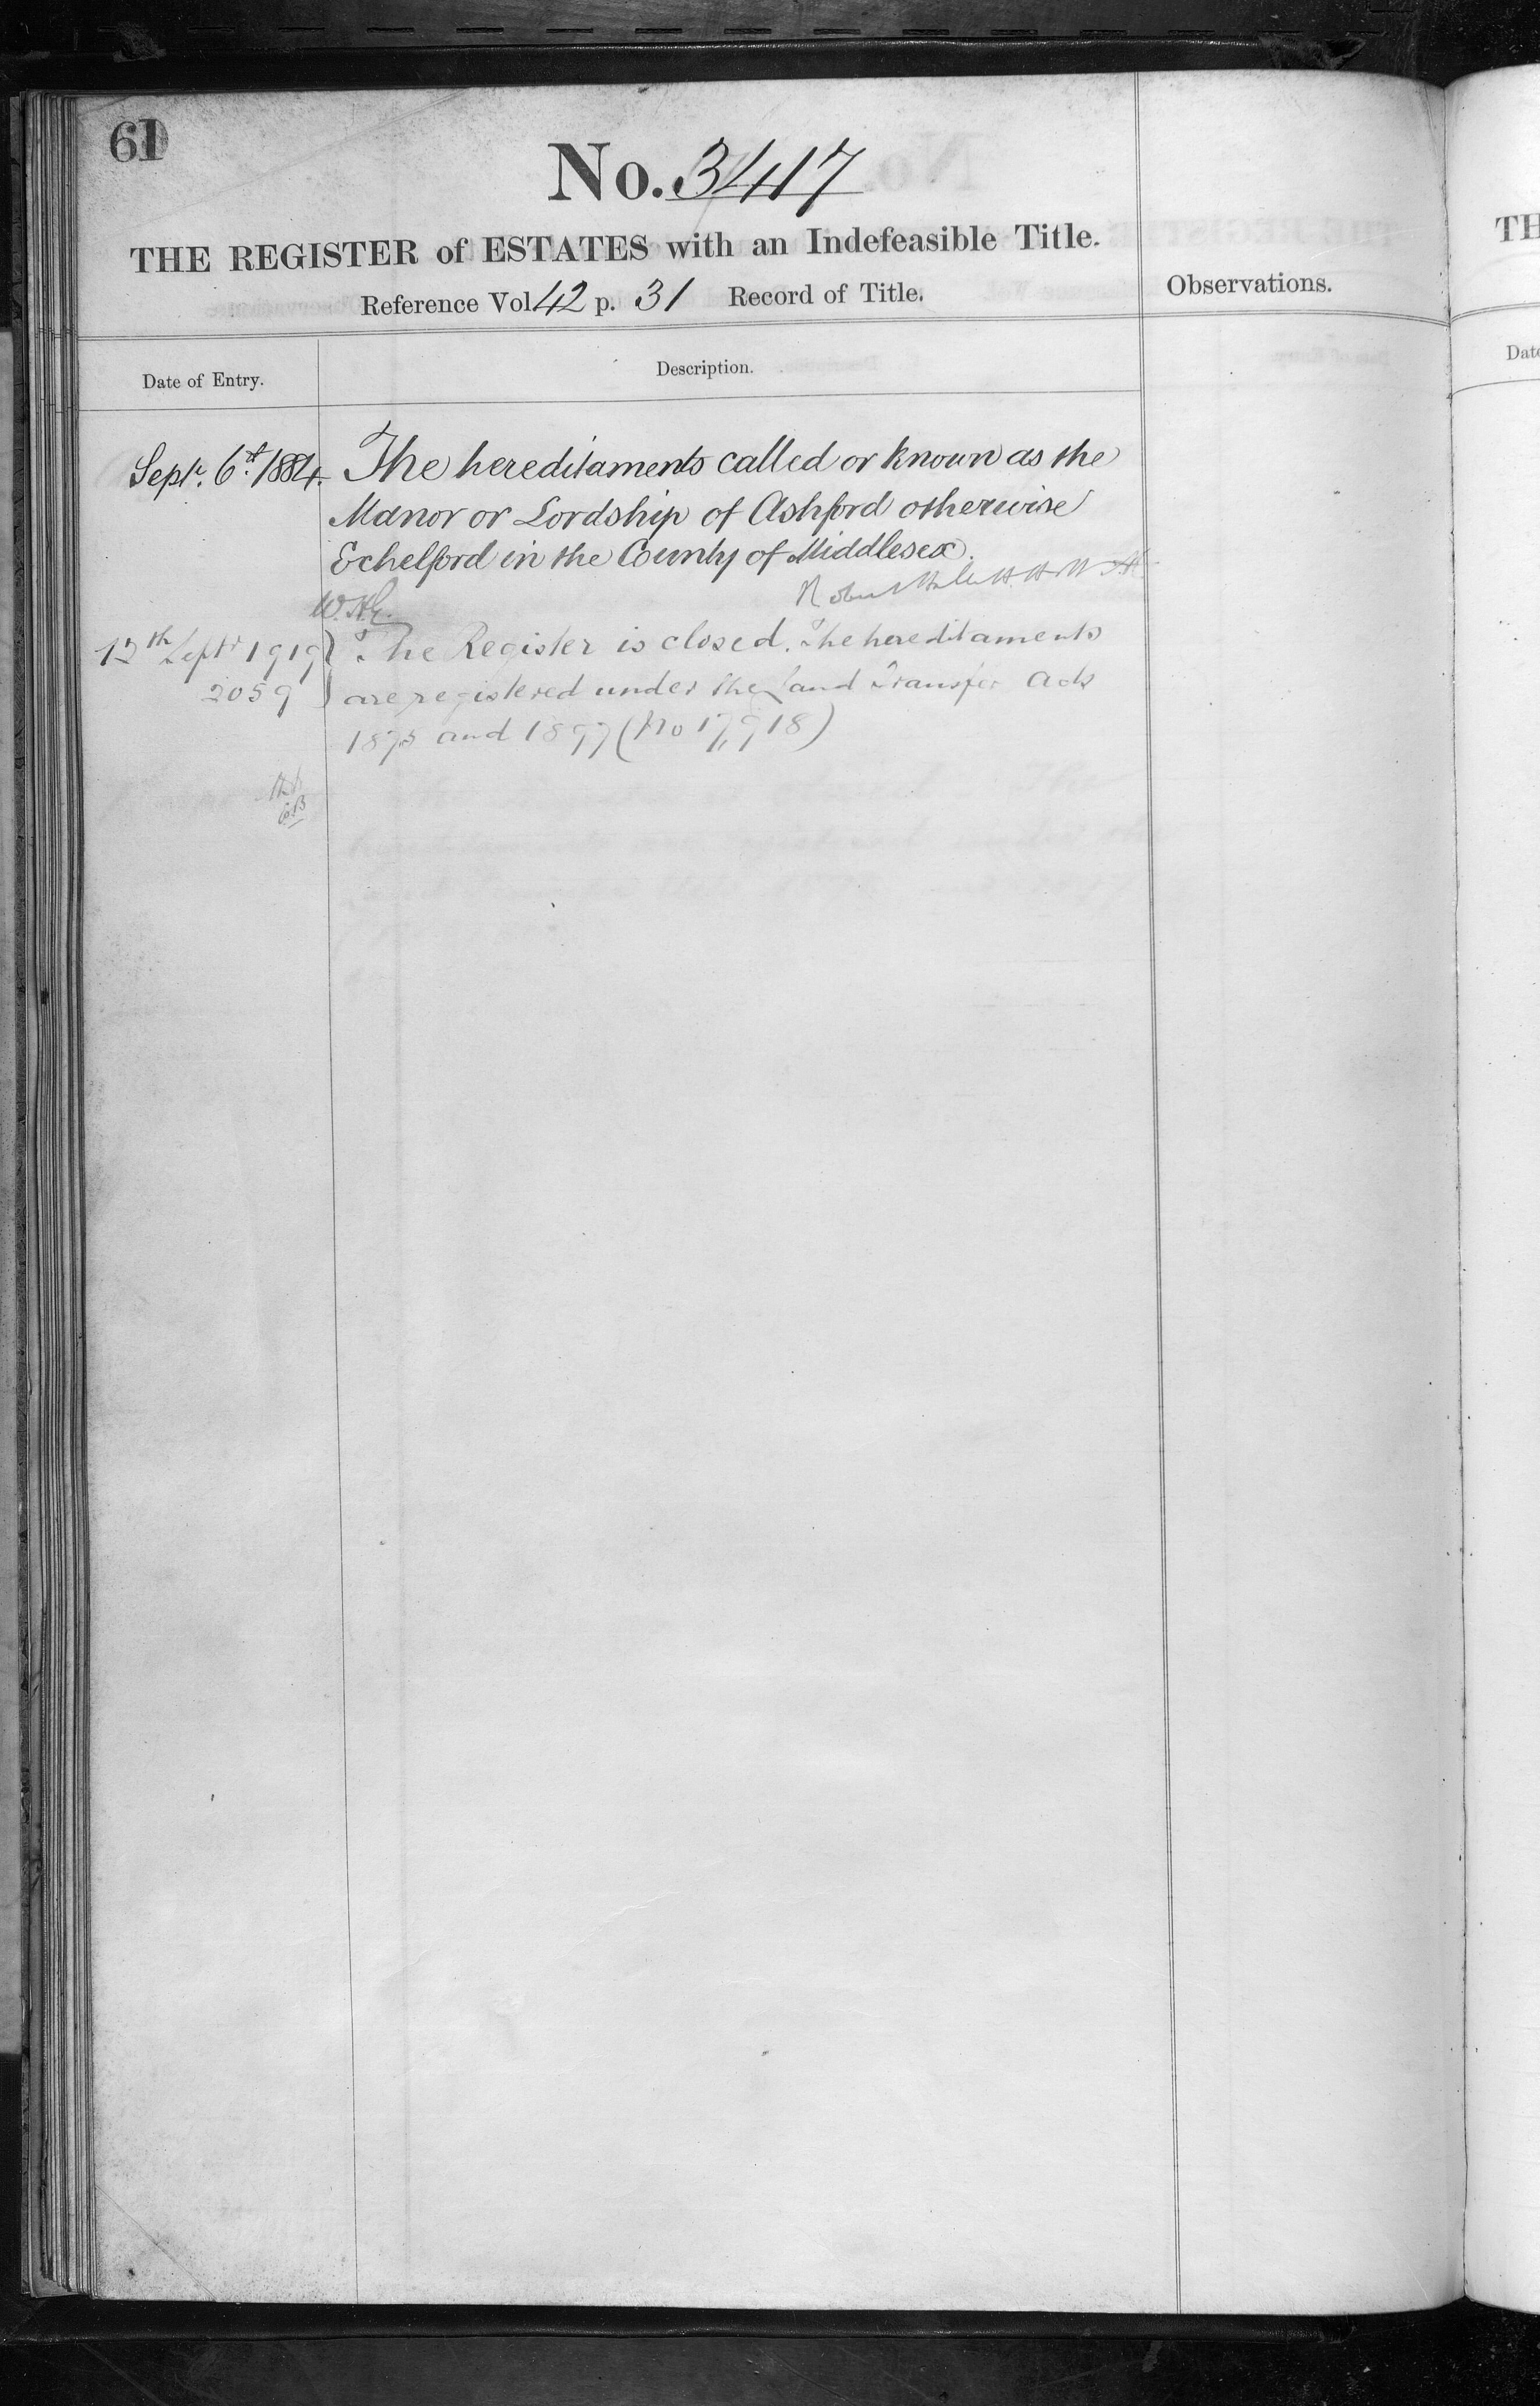 61
No. 3417
THE REGISTER of ESTATES with an Indefeasible Title.
Reference Vol 42 p. 31 Record of Title.
Observations.
Date of Entry.
Description.
Septr. 6th 1884. The hereditaments called or known as the
Manor or Lordship of Ashford otherwise
Echelford in the County of Middlesex.
Robert
12th Septr 1919 The Register is closed. The hereditaments
2059 are registered under the Land Transfer Acts
1875 and 1897 (No 17,918)
TH
Date